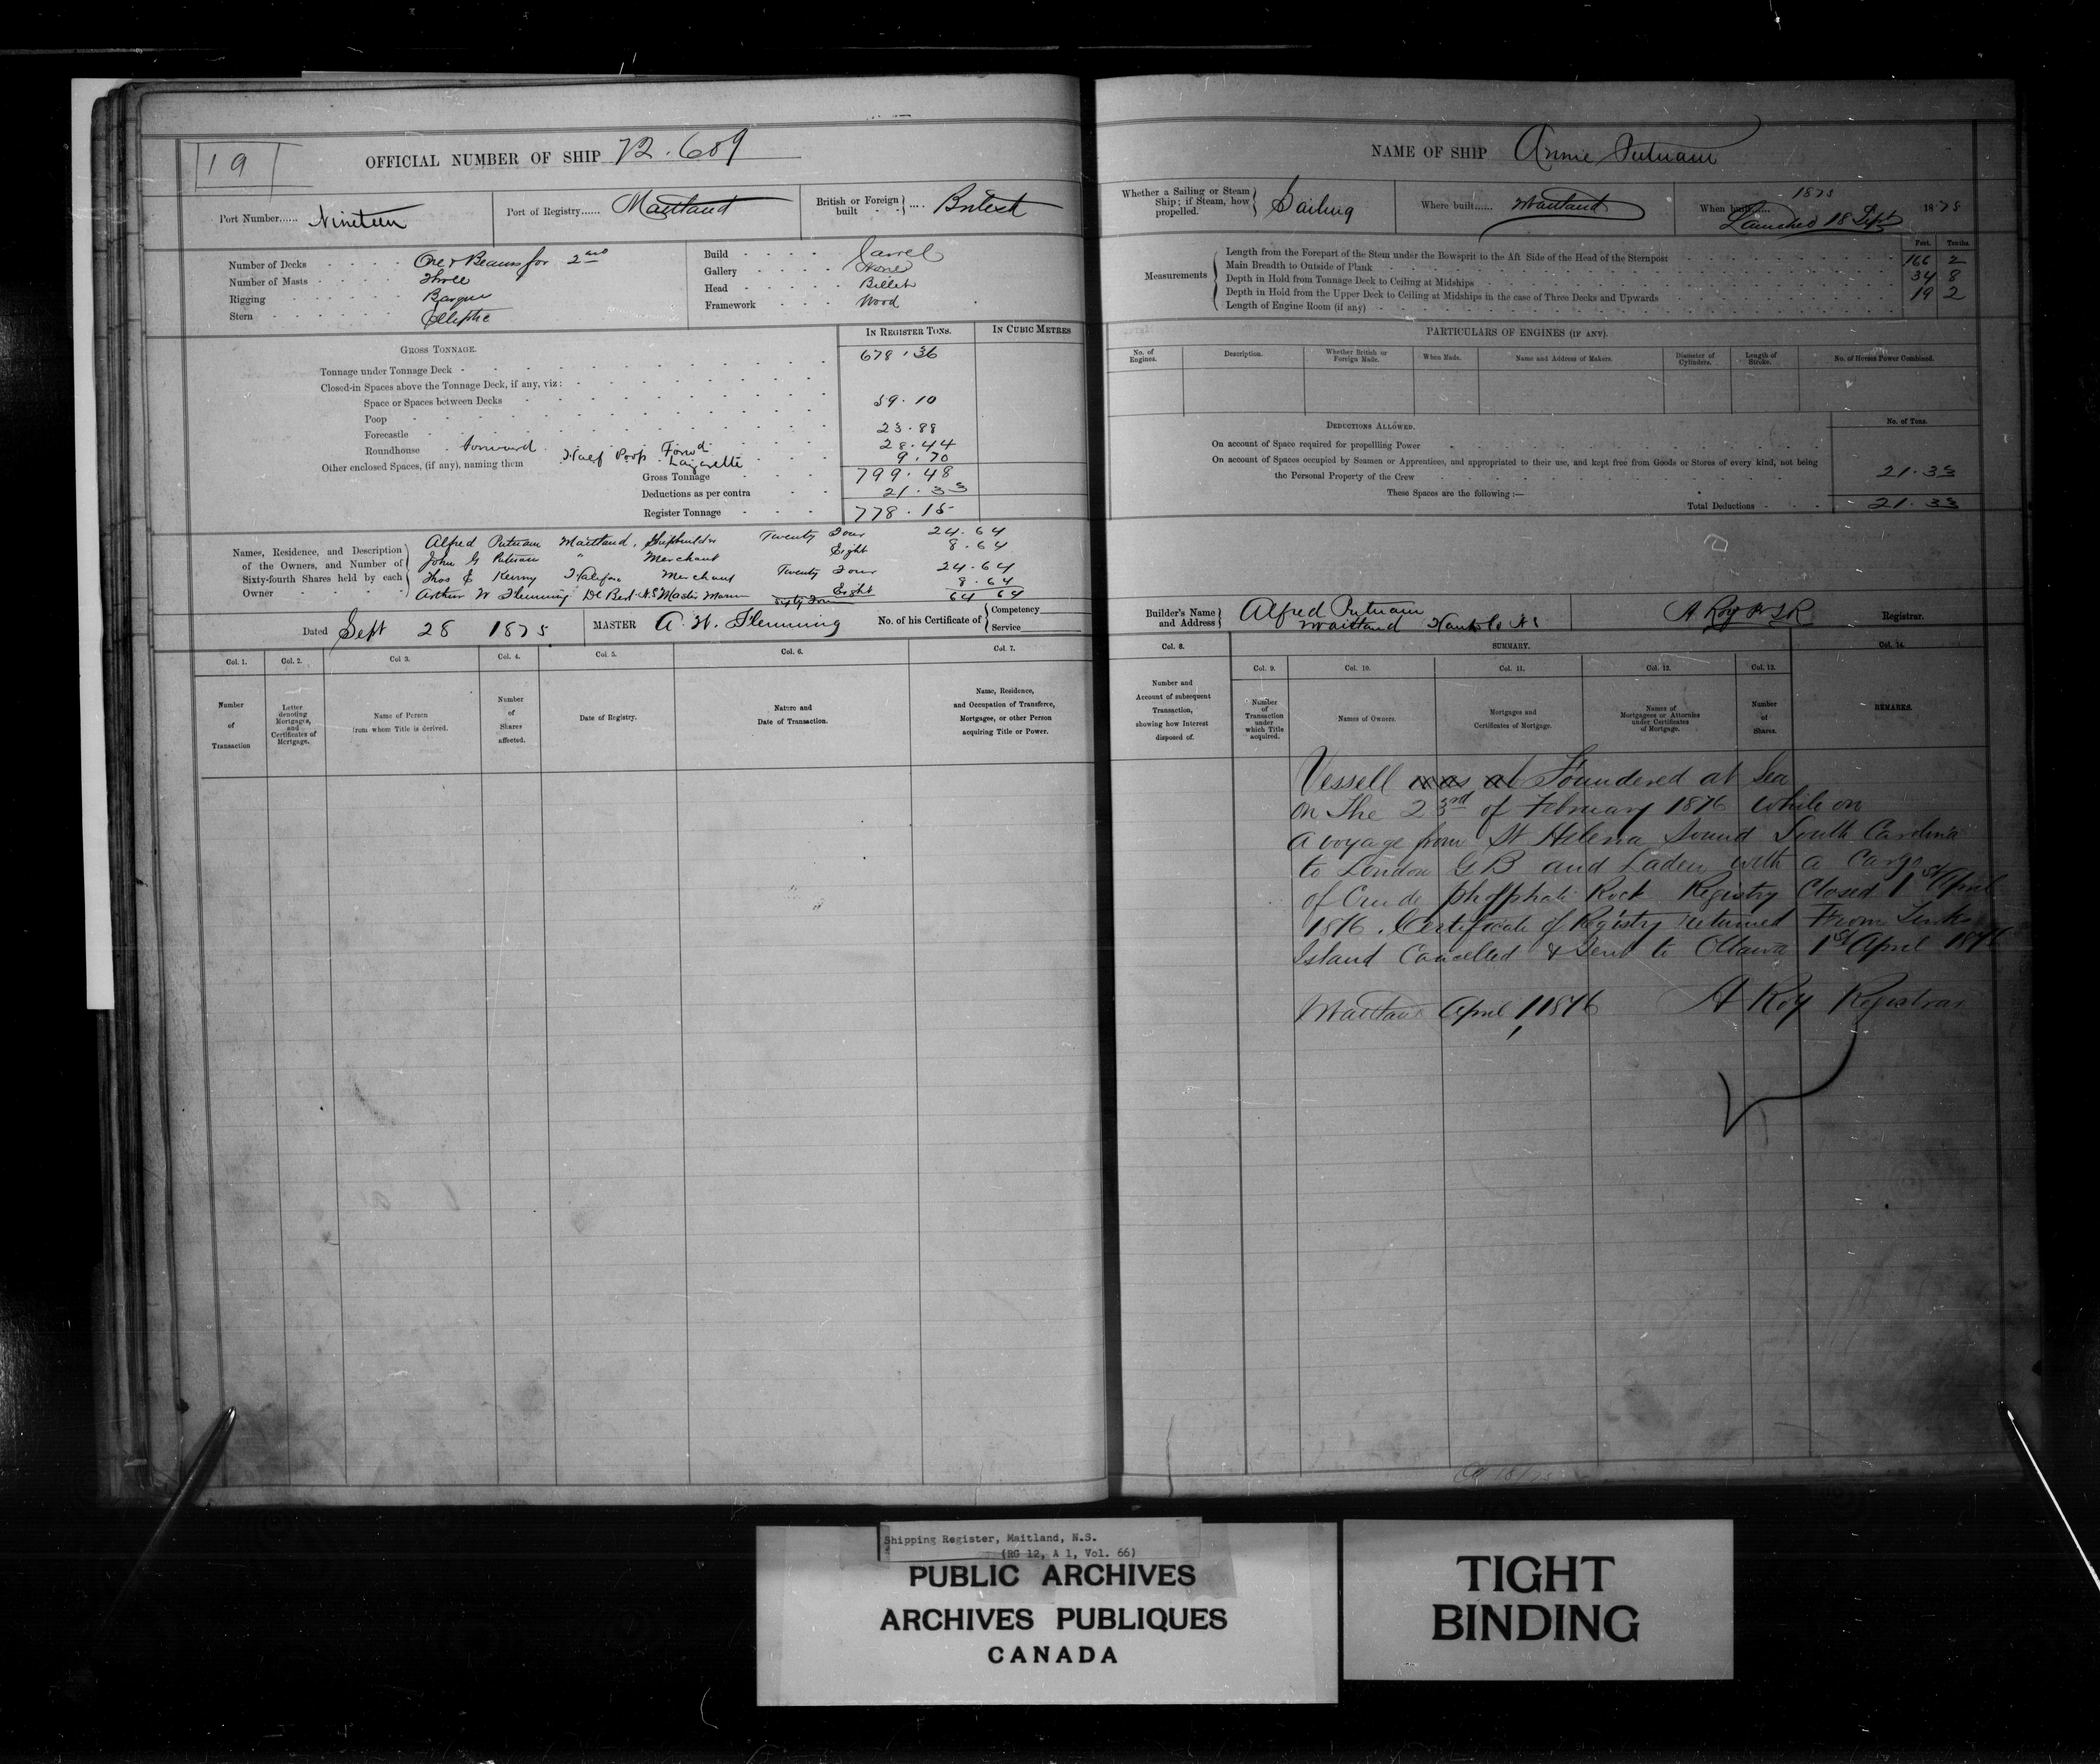 19
OFFICIAL NUMBER OF SHIP 72.609
Port Number...... Nineteen
Port of Registry...... Maitland
British or Foreign built .... British
Number of Decks One & Beams for 2nd
Number of Masts Three
Rigging Barque
Stern Elliptic
Build Carvel
Gallery None
Head Billet
Framework Wood
IN REGISTER TONS.
IN CUBIC METRES
GROSS TONNAGE.
Tonnage under Tonnage Deck 678.36
Closed-in Spaces above the Tonnage Deck, if any, viz:
Space or Spaces between Decks 59.10
Poop
Forecastle 23.88
Roundhouse forward 28.44
Other enclosed Spaces, (if any), naming them Half Poop Forwd Lazarette 9.70
Gross Tonnage 799.48
Deductions as per contra 21.33
Register Tonnage 778.15
Names, Residence, and Description of the Owners, and Number of Sixty-fourth Shares held by each Owner
Alfred Putnam Maitland, Shipbuilder Twenty Four 24.64
John G Putnam " Merchant Eight 8.64
Thos E Kenny Halifax Merchant Twenty Four 24.64
Arthur W Flemming De Bert N.S Master Marin Eight 8.64
Sixty Four 64 64
Dated Sept 28 1875
MASTER A. W. Flemming
No. of his Certificate of Competency Service
Col. 1.
Col. 2.
Col 3.
Col. 4.
Col. 5.
Col. 6.
Col. 7.
Number of Transaction
Letter denoting Mortgages, and Certificates of Mortgage.
Name of Person from whom Title is derived.
Number of Shares affected.
Date of Registry.
Nature and Date of Transaction.
Name, Residence, and Occupation of Transferee, Mortgagee, or other Person acquiring Title or Power.
NAME OF SHIP Annie Putnam
Whether a Sailing or Steam Ship; if Steam, how propelled. Sailing
Where built...... Maitland
When built..... 1875
Launched 18 Sept 1875
Measurements
Feet. Tenths.
Length from the Forepart of the Stem under the Bowsprit to the Aft Side of the Head of the Sternpost 166 2
Main Breadth to Outside of Plank 34 8
Depth in Hold from Tonnage Deck to Ceiling at Midships 19 2
Depth in Hold from the Upper Deck to Ceiling at Midships in the case of Three Decks and Upwards
Length of Engine Room (if any)
PARTICULARS OF ENGINES (IF ANY).
No. of Engines.
Description.
Whether British or Foreign Made.
When Made.
Name and Address of Makers.
Diameter of Cylinders.
Length of Stroke.
No. of Horses Power Combined.
DEDUCTIONS ALLOWED.
No. of Tons.
On account of Space required for propellling Power
On account of Spaces occupied by Seamen or Apprentices, and appropriated to their use, and kept free from Goods or Stores of every kind, not being
the Personal Property of the Crew 21.33
These Spaces are the following:—
Total Deductions 21.33
Builder's Name and Address Alfred Putnam
Maitland Hants Co N S
A Roy
Registrar.
Col. 8.
SUMMARY.
Col. 14.
Col. 9.
Col. 10.
Col. 11.
Col. 12.
Col. 13.
Number and Account of subsequent Transaction, showing how Interest disposed of.
Number of Transaction under which Title acquired.
Names of Owners.
Mortgages and Certificates of Mortgage.
Names of Mortgagees or Attornies under Certificates of Mortgage.
Number of Shares.
REMARKS.
Vessell was at Foundered at Sea
on The 23rd of February 1876 while on
a voyage from St Helena Sound South Carolina
to London G B and Laden with a Cargo
of Crude phosphate Rock Registry Closed 1st April
1876. Certificate of Registry returned From Turks
Island Cancelled & Sent to Ottawa 1st April 1876
Maitland April 1, 1876 A Roy Registrar
Shipping Register, Maitland, N.S.
(RG 12, A 1, Vol. 66)
PUBLIC ARCHIVES
ARCHIVES PUBLIQUES
CANADA
TIGHT
BINDING